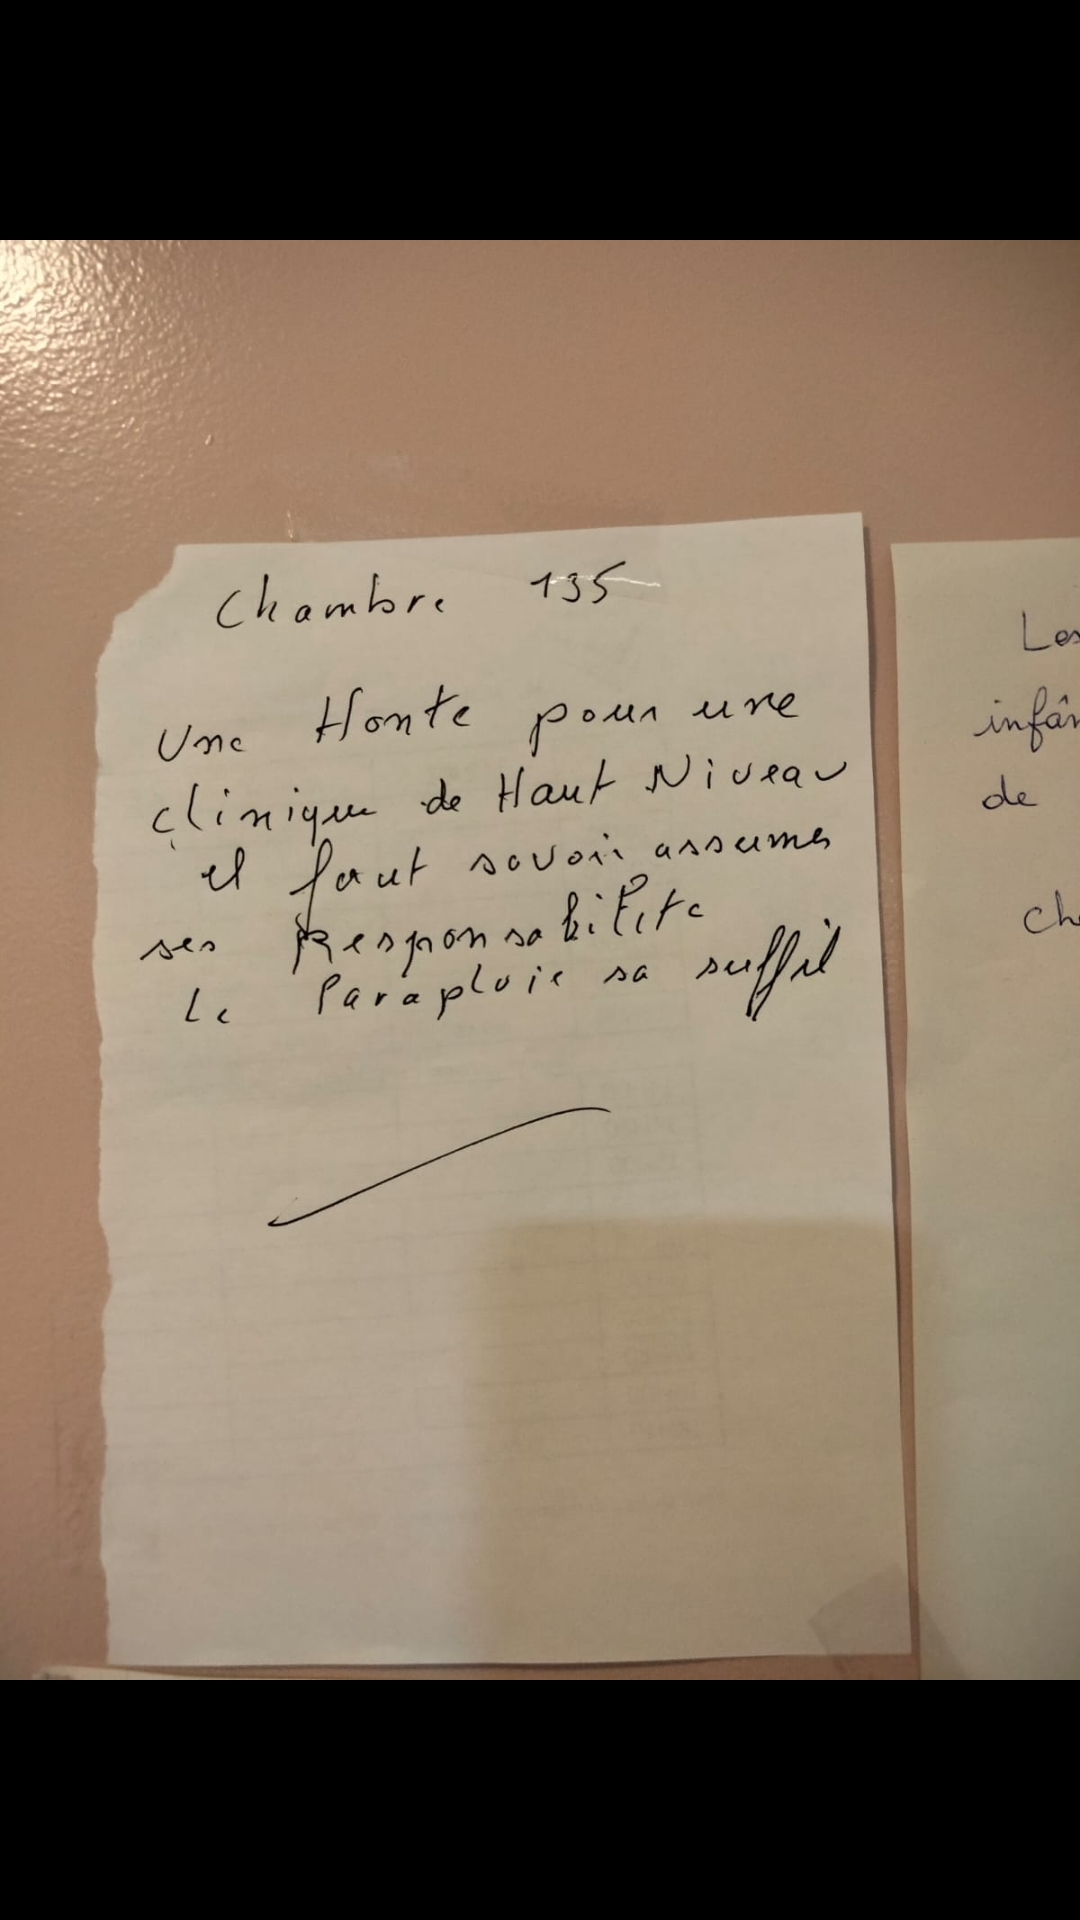 Chambre 135
Une Honte pour une
clinique de Haut Niveau
il faut savoir assumer
ses Responsabilité
Le Parapluie sa suffit
Les
infâm
de
che